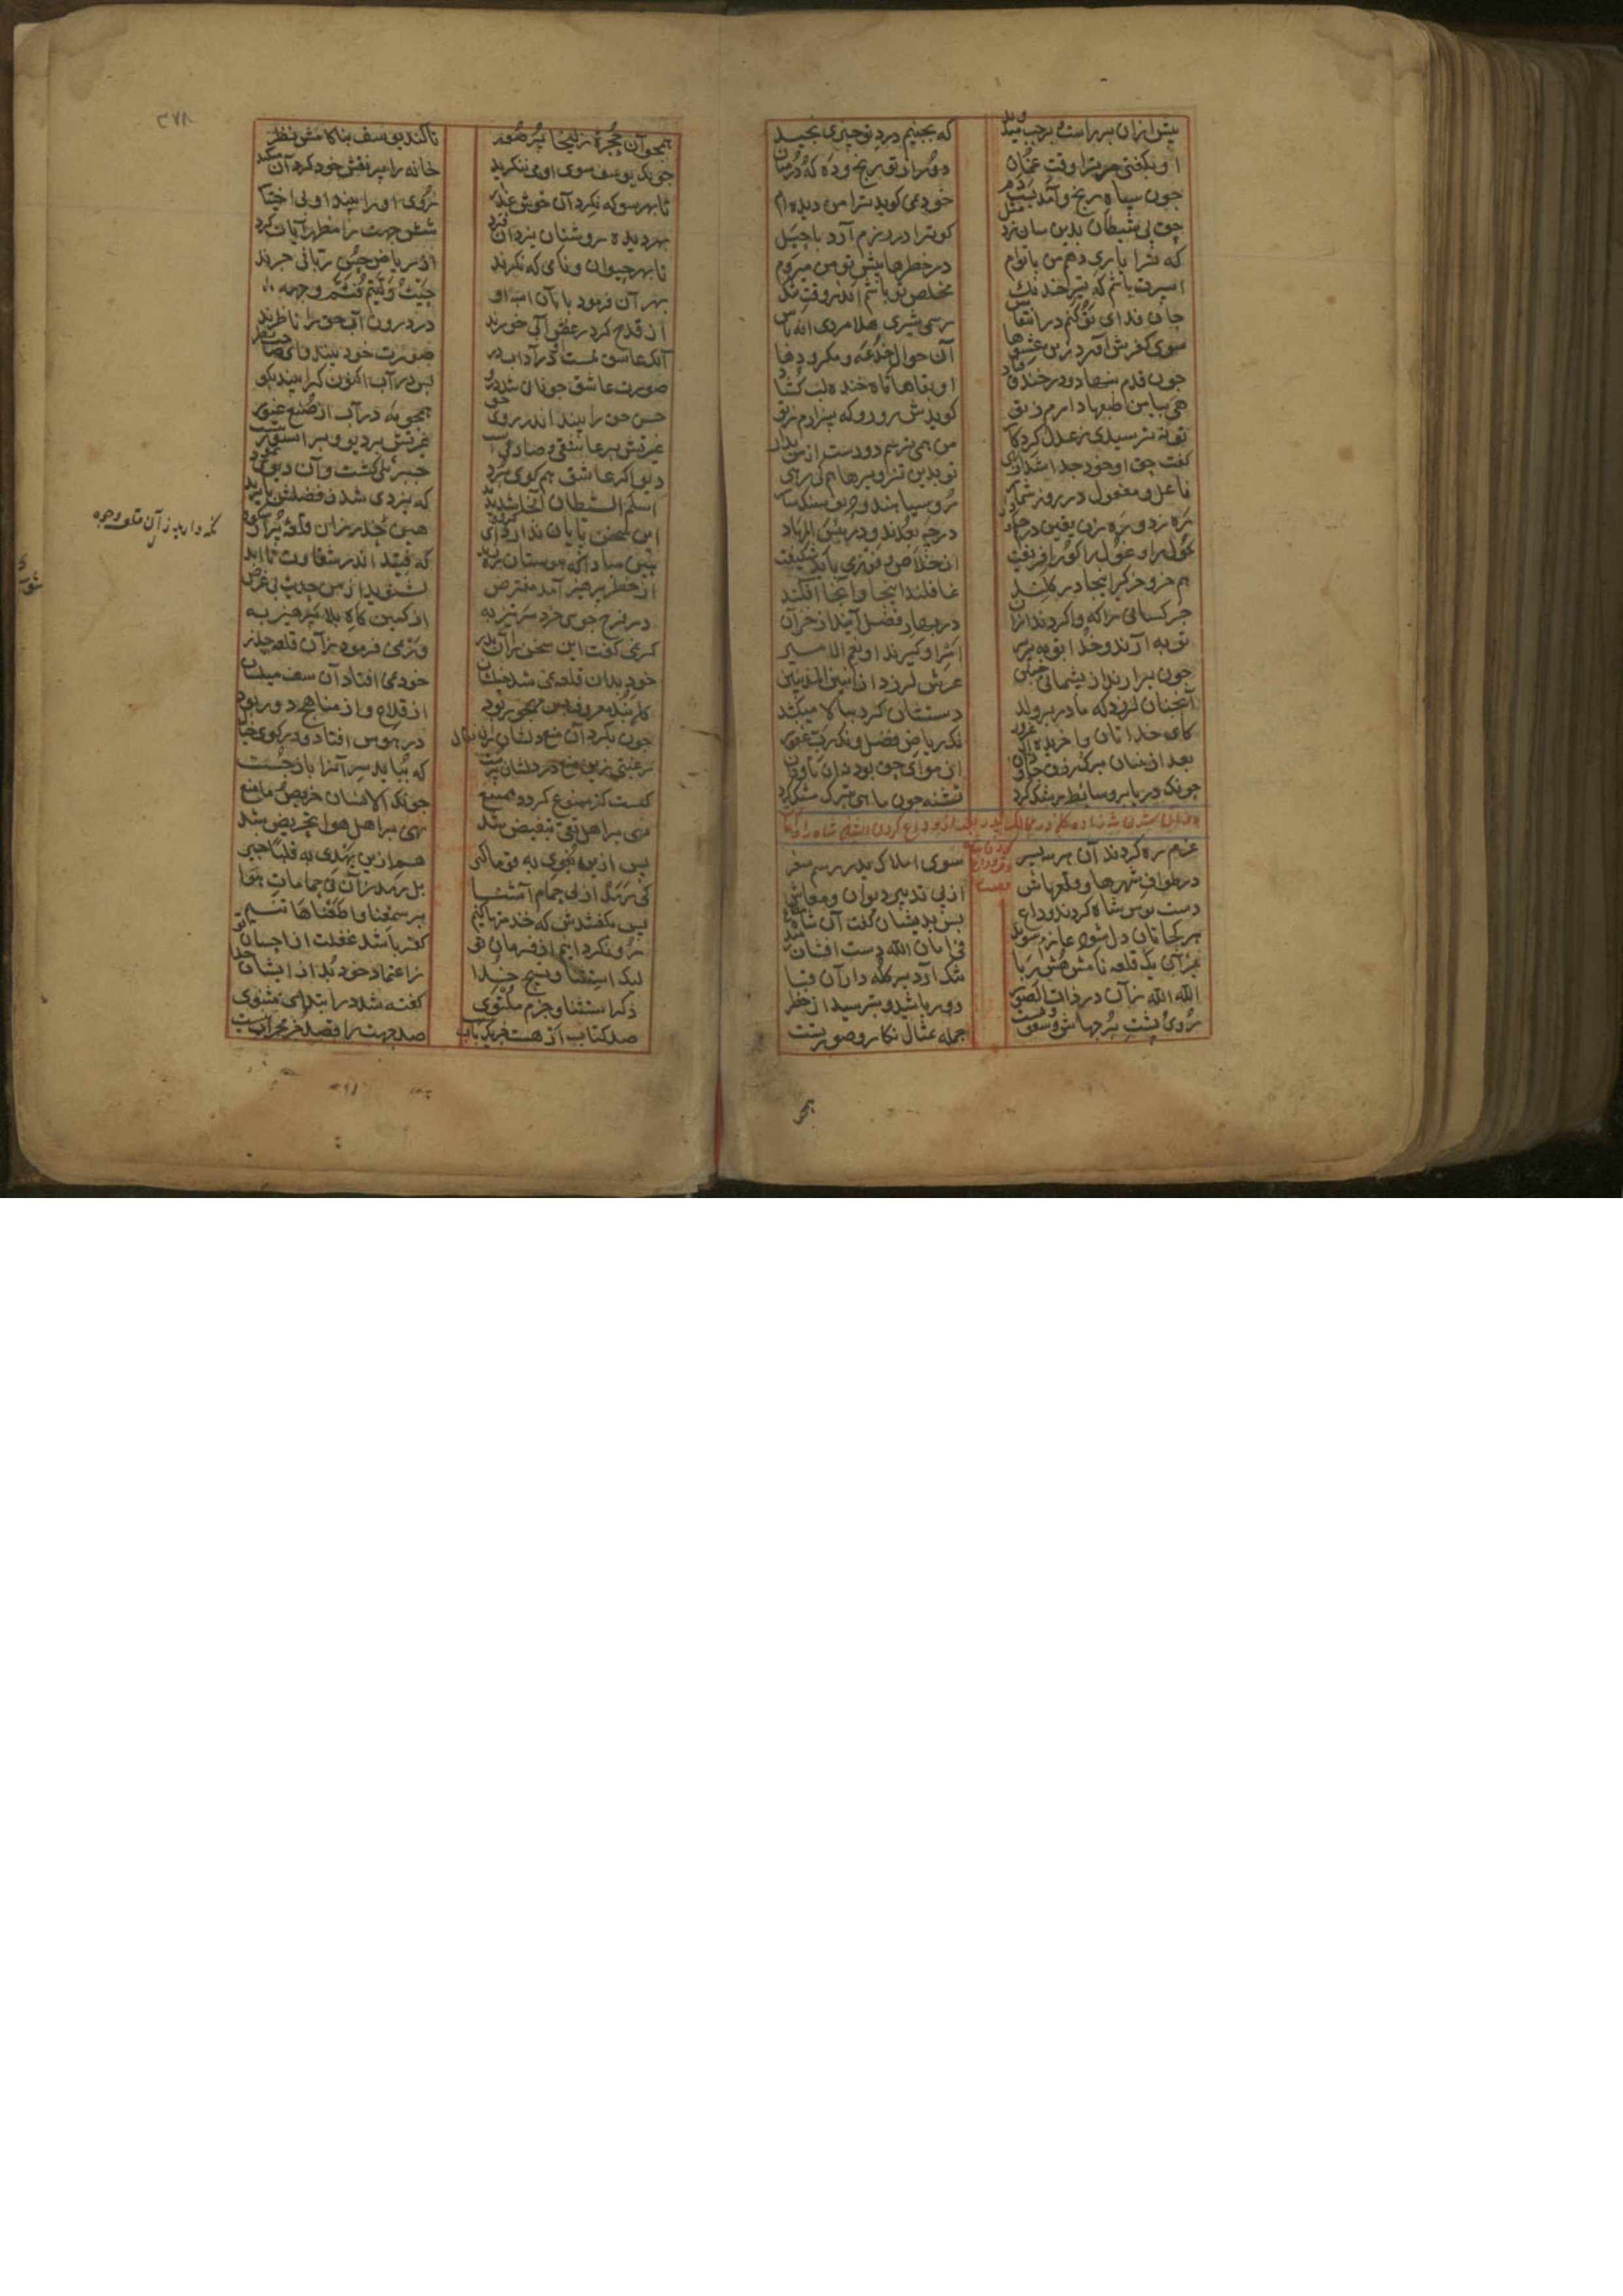 پیش ازان برراست و برچپ میدوید که بجینیم درد تو چیزی نچید
او بگفتی مر ترا وقت غمان دور از تو رنج و ده که درمیان
چون سپاه رنج و آمد بست دم خود نمی گوید ترا من دیده ام
حق پی شیطان بدین سان زد مثل کو ترا در رزم آرد با حیل
که ترا یاری دهم من با توام در خطرها پیش تو من میروم
اسپرت باشم که تیر خدنگ مخلص تو باشم اندر وقت تنگ
جان فدای تو کنم در انتعاش رستمی شیری هلا مردی انه باش
سوی کفرش آورد زین عشوها آن جوال خدعه و مکر و دها
چون قدم بنهاد در خندق فتاد او بقاها قاه خنده لب گشاد
هی بیا من طمعها دارم ز تو گویدش رو رو که بیزارم ز تو
تو نترسیدی ز عدل کردگار من همی ترسم دو دست از من بدار
گفت حق او خود جدا شد از بهی تو بدین تزویرها هم کی رهی
فاعل و مفعول در روز شمار رو سیاهند و حریف سنگسار
ره زد و ره زن یقین در حکم و داد در چه بعدند و در بئس المهاد
غول را و غول را کو را فریفت از خلاص و فوز می باید شکیفت
هم خر و خرگیر اینجا در گلند غافلند اینجا و آنجا آفلند
جز کسانی را که واگردند ازان در بهار فضل آیند از خزان
توبه آرند و خدا توبه پذیر امر او گیرند او نعم الامیر
چون برآرند از پشیمانی حنین عرش لرزد از انین المذنبین
آنچنان لرزد که مادر بر ولد دستشان گیرد ببالا میکشد
کای خداتان وا خریده از غرور نک ریاض فضل و نک رب غفور
بعد ازینتان برک و رزق جاودان از هوای حق بود نه از ناودان
چونک دریا بر وسایط رشک کرد تشنه چون ماهی بترک مشک کرد
روان شدن شه زادگان در ممالک پدر بعد از وداع کردن ایشان شاه را و اعادت
کردن شاه وقت وداع وصیت
عزم ره کردند آن هر سه پسر سوی املاک پدر رسم سفر
در طواف شهرها و قلعهاش از پی تدبیر دیوان و معاش
دست بوس شاه کردند و وداع پس بدیشان گفت آن شاه مطاع
هر کجاتان دل کشد عازم شوید فی امان الله دست افشان روید
غیر آن یک قلعه نامش هش ربا تنگ آرد بر کله داران قبا
الله الله زان دز ذات الصور دور باشید و بترسید از خطر
روی و پشت برجهاش و سقف و پست جمله تمثال و نگار و صورتست
همچو
٣٧٨
همچو آن حجره زلیخا پر صور تا کند یوسف بناکامش نظر
چونک یوسف سوی او می ننگرید خانه را پر نقش خود کرد آن مکید
تا بهر سو که نگرد آن خوش عذار روی او را بیند او بی اختیار
بهر دیده روشنان یزدان فرد شش جهت را مظهر آیات کرد
تا بهر حیوان و نامی که نگرند از ریاض حسن ربانی چرند
بهر آن فرمود با آن اسپه او حیث ولیتم فثم وجهه
از قدح گر در عطش آبی خورند در درون آب حق را ناظرند
آنک عاشق نیست او در آب در صورت خود بیند ای صاحب نظر
صورت عاشق چو فانی شد درو پس در آب اکنون کرا بیند بگو
حسن حق را بیند اندر روی حور همچو مه در آب از صنع غیور
غیرتش بر عاشقی و صادقیست غیرتش بر دیو و بر استور نیست
دیو اگر عاشق هم گوی برد جبرئیلی گشت و آن دیوی بمرد
اسلم الشیطان آنجا شد پدید که یزیدی شد ز فضلش بایزید
این سخن پایان ندارد ای گروه هین نگه دارید زان قلعه وجوه
هین مبادا که هوستان ره زند که فتید اندر شقاوت تا ابد
از خطر پرهیز آمد مفترض بشنوید از من حدیث بی غرض
در فرج جویی خرد سر تیز به از کمین گاه بلا پرهیز به
گر نمی گفت این سخن را آن پدر ور نمی فرمود زان قلعه حذر
خود بدان قلعه نمی شد خیلشان خود نمی افتاد آن سو میلشان
کان نبد معروف بس مهجور بود از قلاع و از مناهج دور بود
چون بکرد آن منع دلشان زان مقال در هوس افتاد و در کوی خیال
رغبتی زین منع در دلشان برست که بباید سر آنرا باز جست
کیست کز ممنوع گردد ممتنع چونک الانسان حریص ما منع
نهی بر اهل تقی تبغیض شد نهی بر اهل هوا تحریض شد
پس ازین یغوی به قوما کثیر هم ازین یهدی به قلبا خبیر
کی رمد از نی حمام آشنا بل رمد زان نی حمامات هوا
پس بگفتندش که خدمتها کنیم بر سمعنا و اطعناها تنیم
رو نگردانیم از فرمان تو کفر باشد غفلت از احسان تو
لیک استثنا و تسبیح خدا ز اعتماد خود بد از ایشان جدا
ذکر استثنا و حزم ملتوی گفته شد در ابتدای مثنوی
صد کتاب ار هست جز یک باب نیست صد جهت را قصد جز محراب نیست
نگه دارید زآن قلعه وجوه